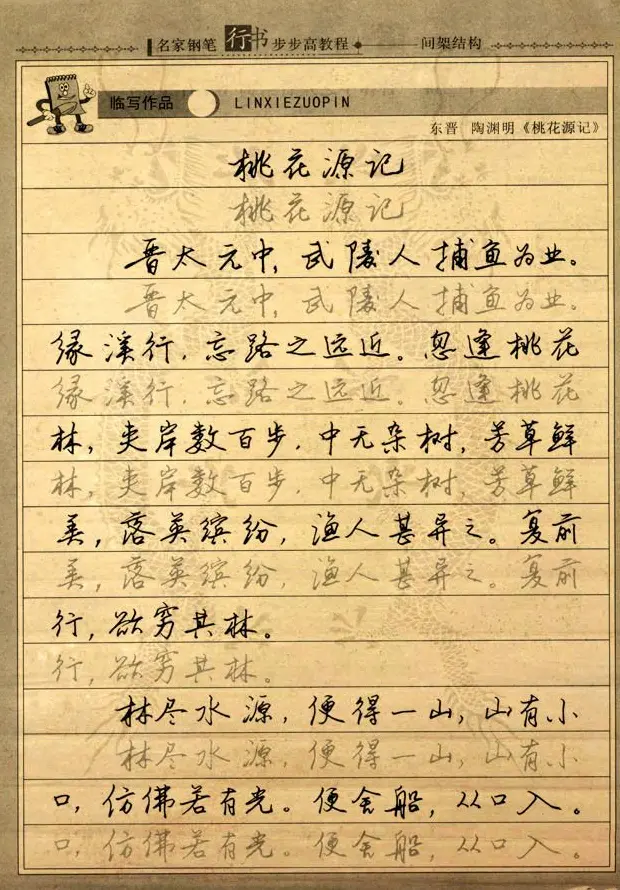 名家钢笔行书步步高教程 间架结构
临写作品 LINXIEZUOPIN
东晋 陶渊明《桃花源记》
桃花源记
桃花源记
晋太元中,武陵人捕鱼为业。
晋太元中,武陵人捕鱼为业。
缘溪行,忘路之远近。忽逢桃花
缘溪行,忘路之远近。忽逢桃花
林,夹岸数百步,中无杂树,芳草鲜
林,夹岸数百步,中无杂树,芳草鲜
美,落英缤纷,渔人甚异之。复前
美,落英缤纷,渔人甚异之。复前
行,欲穷其林。
行,欲穷其林。
林尽水源,便得一山,山有小
林尽水源,便得一山,山有小
口,仿佛若有光。便舍船,从口入。
口,仿佛若有光。便舍船,从口入。